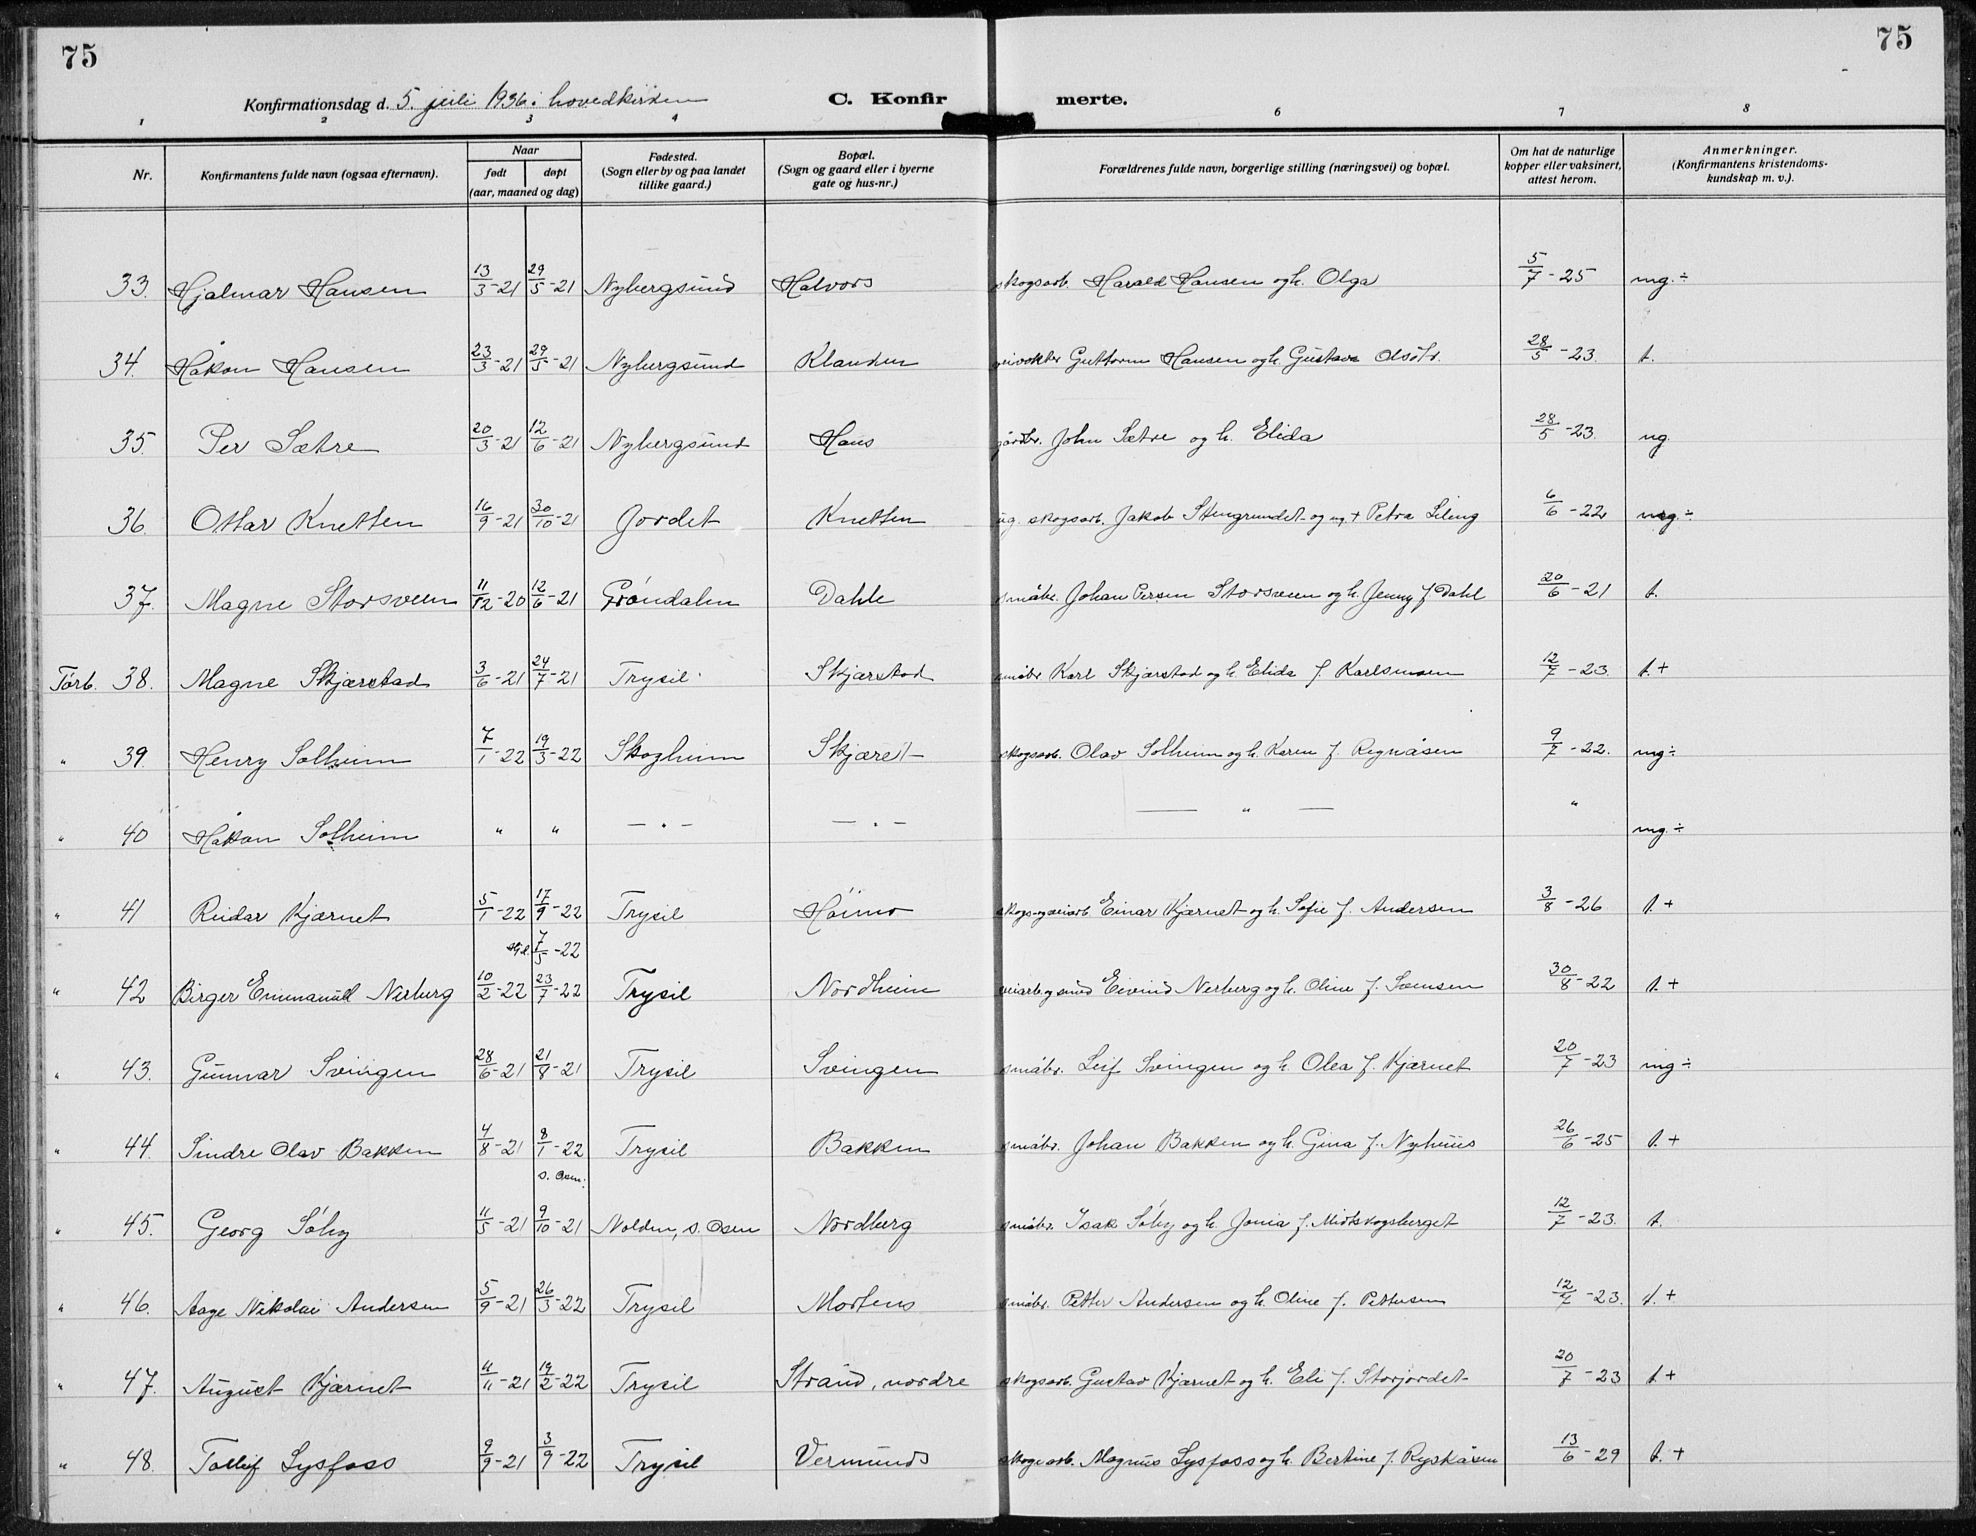 75
75
Konfirmationsdag d. 5. juli 1936 i hovedkirken
C. Konfirmerte.
1 2 3 4 6 7 8
Nr. Konfirmantens fulde navn (ogsaa efternavn). Naar født døpt (aar, maaned og dag) Fødested. (Sogn eller by og paa landet tillike gaard.) Bopæl. (Sogn og gaard eller i byerne gate og hus-nr.) Forældrenes fulde navn, borgerlige stilling (næringsvei) og bopæl. Om hat de naturlige kopper eller vaksinert, attest herom. Anmerkninger. (Konfirmantens kristendomskundskap m. v.).
33. Hjalmar Hansen 13/3-21 29/5-21 Nybergsund Halvors skogsarb. Harald Hansen og h. Olga 5/7-25 mg. ÷
34. Håkon Hansen 23/3-21 29/5-21 Nybergsund Klanden veivokter Guttorm Hansen og h. Gustava Olsdtr. 28/5-23. t.
35. Per Sætre 20/3-21 12/6-21 Nybergsund Hans gårdbr. John Sætre og h. Elida 28/5-23. ng.
36. Ottar Knetten 16/9-21 30/10-21 Jordet Knetten ug. skogsarb. Jakob Stengrundet og ug. + Petra Liling 6/6-22 mg. ÷
37. Magne Storsveen 11/12-20 12/6-21 Grøndalen Dahle småbr. Johan Persen Storsveen og h. Jenny f Dahl 20/6-21 t.
Tørb. 38. Magne Skjærstad 3/6-21 24/7-21 Trysil Skjærstad småbr Karl Skjærstad og h. Elida f. Karlsmoen 12/7-23. t. +
" 39. Henry Solheim 7/1-22 19/3-22 Skogheim Skjæret skogsarb. Olav Solheim og h. Karen f. Regnåsen 9/7-22. mg ÷
" 40 Håkon Solheim " " — " — — " — — " — " mg. ÷
" 41 Reidar Kjærnet 5/1-22 17/9-22 Trysil Høimo skogs- og veiarb. Einar Kjærnet og h. Sofie f. Andersen 3/8-26 t. +
7/5-22
" 42 Birger Emmanuell Nerberg 10/2-22 23/7-22 Trysil Nordheim veiarb og smed Eivind Nerberg og h. Oline f. Iversen 30/8-22 t. +
" 43. Gunnar Svingen 28/6-21 21/8-21 Trysil Svingen småbr. Leif Svingen og h. Olea f. Kjærnet 20/7-23 mg ÷
" 44. Sindre Olav Bakken 4/8-21 8/1-22 Trysil Bakken småbr. Johan Bakken og h. Gina f. Nyhuus 26/6-25 t. +
s. Osen.
" 45. Georg Søby 11/5-21 9/10-21 Nolden, s. Osen Nordberg småbr. Isak Søby og h. Jonia f. Midtskogsberget 12/7-23. t.
" 46. Aage Nikolai Andersen 5/9-21 26/3-22 Trysil Mortens småbr. Petter Andersen og h. Oline f. Pettersen 12/7-23. t. +
" 47. August Kjærnet 11/11-21 19/2-22 Trysil Strand, nordre skogsarb. Gustav Kjærnet og h. Eli f. Storjordet 20/7-23 t. +
" 48. Tollef Lysfoss 9/9-21 3/9-22 Trysil Vermunds skogsarb. Magnus Lysfoss og h. Bertine f. Ryskåsen 13/6-29 t. +